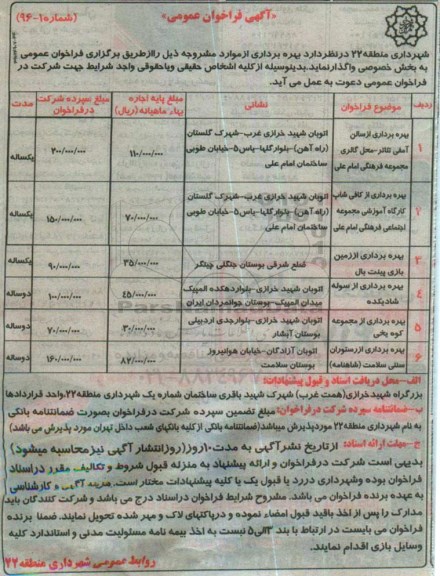 «آگهی فراخوان عمومی»
(شماره۱-۹۶)
شهرداری منطقه۲۲ درنظردارد بهره برداری ازموارد مشروحه ذیل راازطریق برگزاری فراخوان عمومی
به بخش خصوصی واگذارنماید.بدینوسیله ازکلیه اشخاص حقیقی ویاحقوقی واجد شرایط جهت شرکت در
فراخوان عمومی دعوت به عمل می آید.
ردیف موضوع فراخوان نشانی مبلغ پایه اجاره بهاء ماهیانه(ریال) مبلغ سپرده شرکت درفراخوان مدت
۱ بهره برداری ازسالن آمفی تئاتر-محل گالری مجموعه فرهنگی امام علی اتوبان شهید خرازی غرب-شهرک گلستان (راه آهن)-بلوارگلها-یاس۵-خیابان طوبی ساختمان امام علی ۱۱۰/۰۰۰/۰۰۰ ۲۰۰/۰۰۰/۰۰۰ یکساله
۲ بهره برداری از کافی شاپ کارگاه آموزشی مجموعه اجتماعی فرهنگی امام علی اتوبان شهید خرازی غرب-شهرک گلستان (راه آهن)-بلوارگلها-یاس۵-خیابان طوبی ساختمان امام علی ۷۰/۰۰۰/۰۰۰ ۱۵۰/۰۰۰/۰۰۰ یکساله
۳ بهره برداری اززمین بازی پینت بال ضلع شرقی بوستان جنگلی چیتگر ۳۵/۰۰۰/۰۰۰ ۹۰/۰۰۰/۰۰۰ یکساله
۴ بهره برداری از سوله شادیکده اتوبان شهید خرازی-بلواردهکده المپیک میدان المپیک-بوستان جوانمردان ایران ۴۵/۰۰۰/۰۰۰ ۱۰۰/۰۰۰/۰۰۰ دوساله
۵ بهره برداری از مجموعه کوه یخی اتوبان شهید خرازی-بلوارجدی اردبیلی بوستان آبشار ۳۰/۰۰۰/۰۰۰ ۷۰/۰۰۰/۰۰۰ دوساله
۶ بهره برداری اززستوران سنتی سلامت (شاهنامه) اتوبان آزادگان-خیابان هوانیروز بوستان سلامت ۸۲/۰۰۰/۰۰۰ ۱۶۰/۰۰۰/۰۰۰ دوساله
الف-محل دریافت اسناد و قبول پیشنهادات:
بزرگراه شهیدخرازی(همت غرب) شهرک شهید باقری ساختمان شماره یک شهرداری منطقه۲۲.واحد قراردادها
ب-ضمانتنامه سپرده شرکت درفراخوان: مبلغ تضمین سپرده شرکت درفراخوان بصورت ضمانتنامه بانکی
به نام شهرداری منطقه۲۲ موردپذیرش میباشد(ضمانتنامه بانکی ازکلیه بانکهای شعب داخل تهران مورد پذیرش می باشد)
ج-مهلت ارائه اسناد: ازتاریخ نشرآگهی به مدت۱۰روز(روزانتشار آگهی نیزمحاسبه میشود)
بدیهی است شرکت درفراخوان و ارائه پیشنهاد به منزله قبول شروط و تکالیف مقرر دراسناد
فراخوان بوده وشهرداری دررد یا قبول یک یا کلیه پیشنهادات مختار است. هزینه آگهی و کارشناسی
به عهده برنده فراخوان می باشد. مشروح شرایط فراخوان دراسناد درج می باشد و شرکت کنندگان باید
مدارک را پس از اخذ باقید قبول امضاء نموده و درپاکتهای لاک و مهر شده تحویل نمایند. ضمنا برنده
فراخوان می بایست در ارتباط با بند ۳الی۵ نسبت به اخذ بیمه نامه مسئولیت مدنی و استاندارد کلیه
وسایل بازی اقدام نمایند.
روابط عمومی شهرداری منطقه۲۲